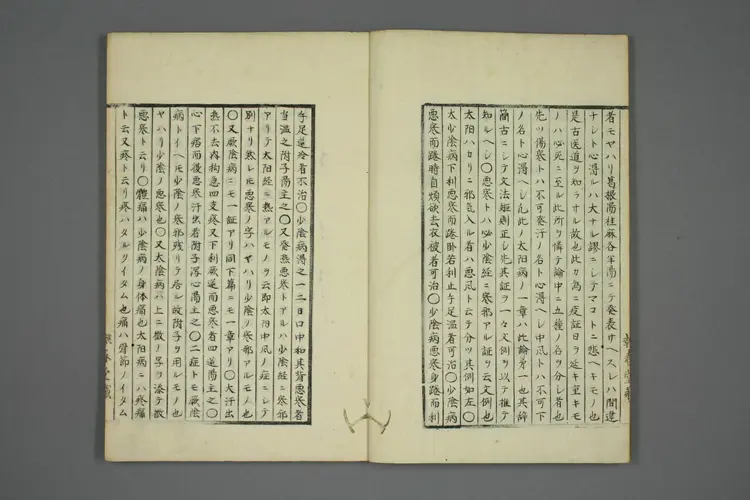 者モヤハリ葛根湯桂麻各半湯ニテ発表サヘスレハ間違
ナシト心得ルハ大ナル謬ニシテマコトニ悲ヘキモノ也
是古医道ヲ知ラサル故也此カ為ニ疫証日々ニ近キ至キモ
ノハ必死ニ至ル此所ヲ憐テ論中ニ五種ノ名ヲ分レ者也
先ツ傷寒トハ不可発汗ノ名ト心得ヘシ中風トハ不可下
ノ名ト心得ヘシ凡此ノ太陽病ノ一章ハ此論第一也其辞
簡古ニシテ文法矩則正シ先其証ヲ一々文例ヲ以テ推テ
知ルヘシ〇悪寒トハ必少陰経ニ寒邪アル証ヲ云文例也
太阳ハカリニ邪気入ル者ハ悪風ト云テ分ツ其例如左〇
太少陰病下利悪寒而踡卧若利止手足温者可治〇少陰病
悪寒而踡時自煩欲去衣被者可治〇少陰病悪寒身踡而利
手足逆冷者不治〇少陰病得之一二日口中和其背悪寒者
当温之附子湯主之〇又発熱悪寒トアルハ少陰経ニ寒邪
アリテ太阳経ニ熱アルモノヲ云即太阳中風ノ症ニシテ
別ナリ然レモ悪寒ノ字ハヤハリ少陰ノ寒邪アルモノ也
〇又厥陰病ニモ一証アリ同下篇ニモ一章アリ〇大汗出
熱不去内拘急四支疼又下利厥逆而悪寒者四逆湯主之〇
心下痞而後悪寒汗出者附子泻心湯主之〇二症トモ厥陰
病トイヘモ少陰ノ寒邪残リテ居ル故附子ヲ用レモノ也
ヤハリ少陰ノ悪寒也〇又太陰病ハ上ニ微ノ字ヲ添テ微
悪寒ト云リ〇體痛ハ少陰病ノ身体痛也太阳病ニハ疼痛
ト云又疼ト云リ疼ハタルクイタム也痛ハ骨節ノイタム